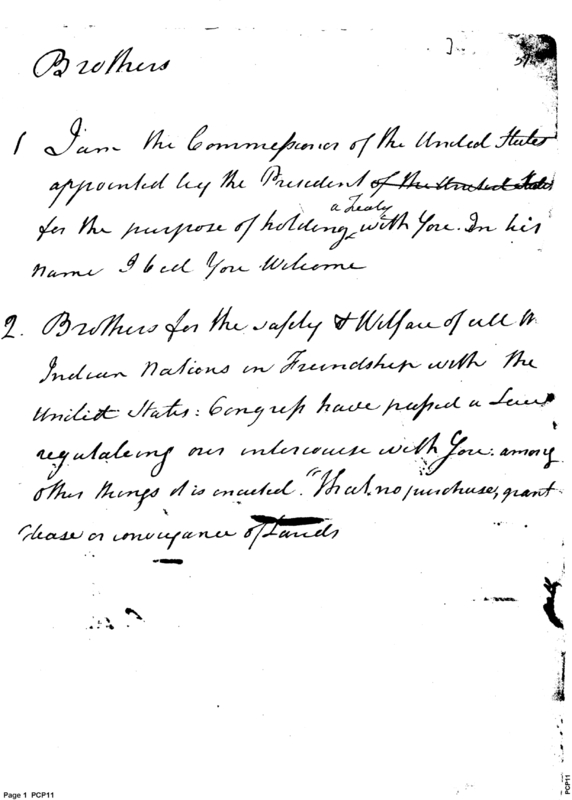 Brothers
1 I am the Commissioner of the United States
appointed by the President of the United States
for the purpose of holding a Treaty with You. In his
name I bid You Welcome
2. Brothers for the safety & Welfare of all th
Indian Nations in Friendship with the
United States: Congress have passed a Law
regulateing our intercourse with You. among
other things it is enacted. "That no purchase, grant
"lease or conveyance of Lands
Page 1 PCP11
PCP11